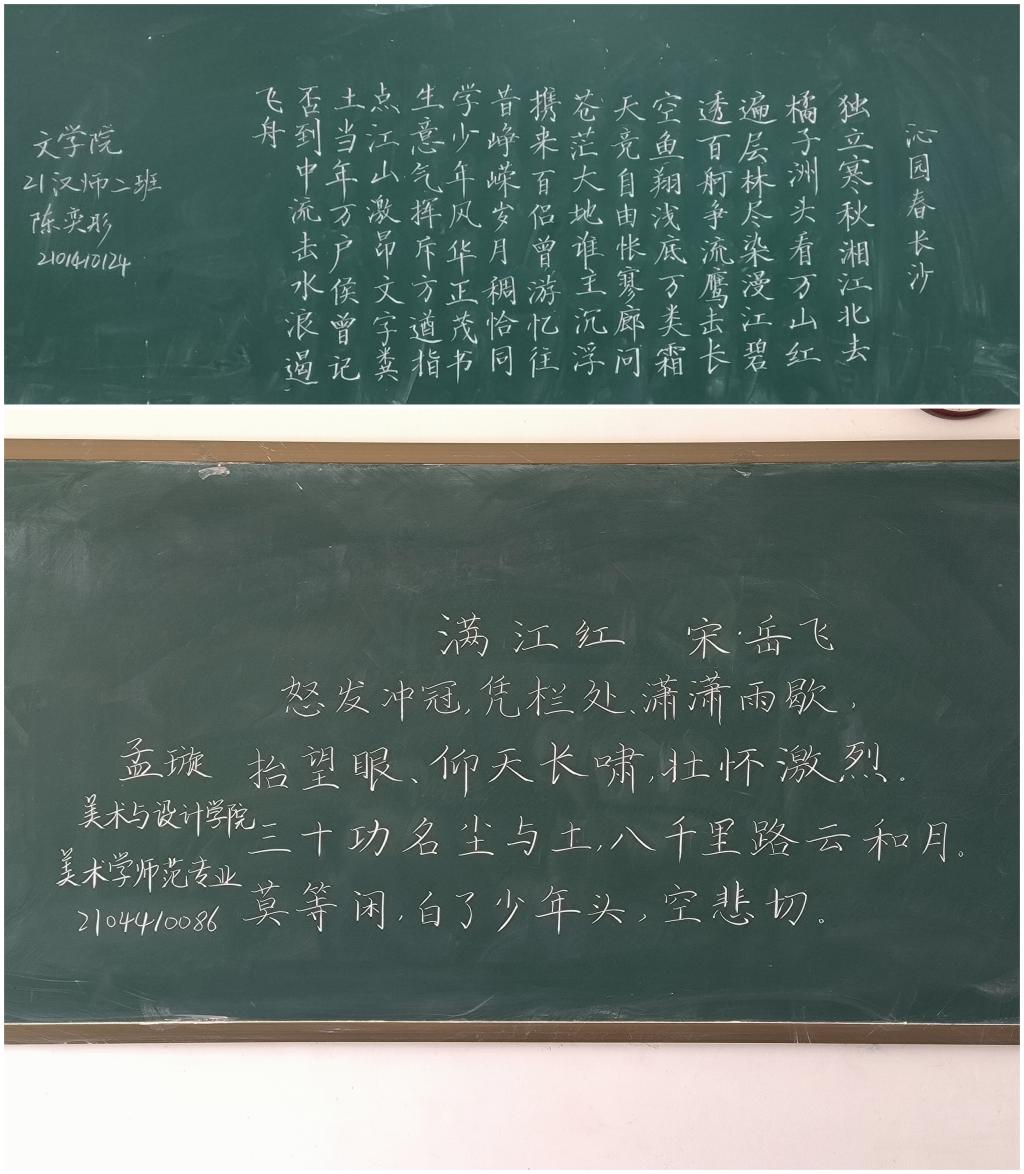 沁园春长沙
独立寒秋湘江北去
橘子洲头看万山红
遍层林尽染漫江碧
透百舸争流鹰击长
空鱼翔浅底万类霜
天竞自由怅寥廓问
苍茫大地谁主沉浮
携来百侣曾游忆往
昔峥嵘岁月稠恰同
学少年风华正茂书
生意气挥斥方遒指
点江山激昂文字粪
土当年万户侯曾记
否到中流击水浪遏
飞舟
文学院
21汉师二班
陈奕彤
2101410124
满江红 宋·岳飞
怒发冲冠,凭栏处、潇潇雨歇,
抬望眼、仰天长啸,壮怀激烈。
三十功名尘与土,八千里路云和月。
莫等闲,白了少年头,空悲切。
孟璇
美术与设计学院
美术学师范专业
2104410086